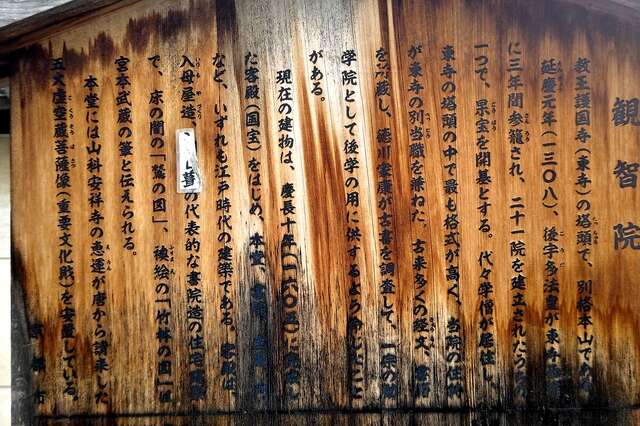 観智院
教王護国寺(東寺)の塔頭で、別格本山であ
延慶元年(一三〇八)、後宇多法皇が東寺
に三年間参籠され、二十一院を建立されたうち
一つで、杲宝を開基とする。代々学僧が居住し、
東寺の塔頭の中で最も格式が高く、当院の住
が東寺の別当職を兼ねた。古来多くの経文、
を所蔵し、徳川家康が古書を調査して、一宗の
学院として後学の用に供するよう こと
がある。
現在の建物は、慶長十年(一六〇五)に
た客殿(国宝)をはじめ、本堂、書院、
など、いずれも江戸時代の建築である。客殿は、
入母屋造、 葺の代表的な書院造の住宅
で、床の間の「鷲の図」、襖絵の「竹林の図」は
宮本武蔵の筆と伝えられる。
本堂には山科安祥寺の恵運が唐から請来した
五大虚空蔵菩薩像(重要文化財)を安置している。
京都市